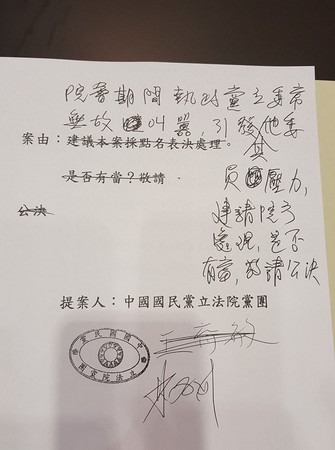 院會期間執政黨立委常
無故叫囂,引發其他委
案由:建議本案採點名表決處理。
是否有當?敬請
公決
員壓力,
建請院方
處理,是否
有當,敬請公決
提案人:中國國民黨立法院黨團
王育敏